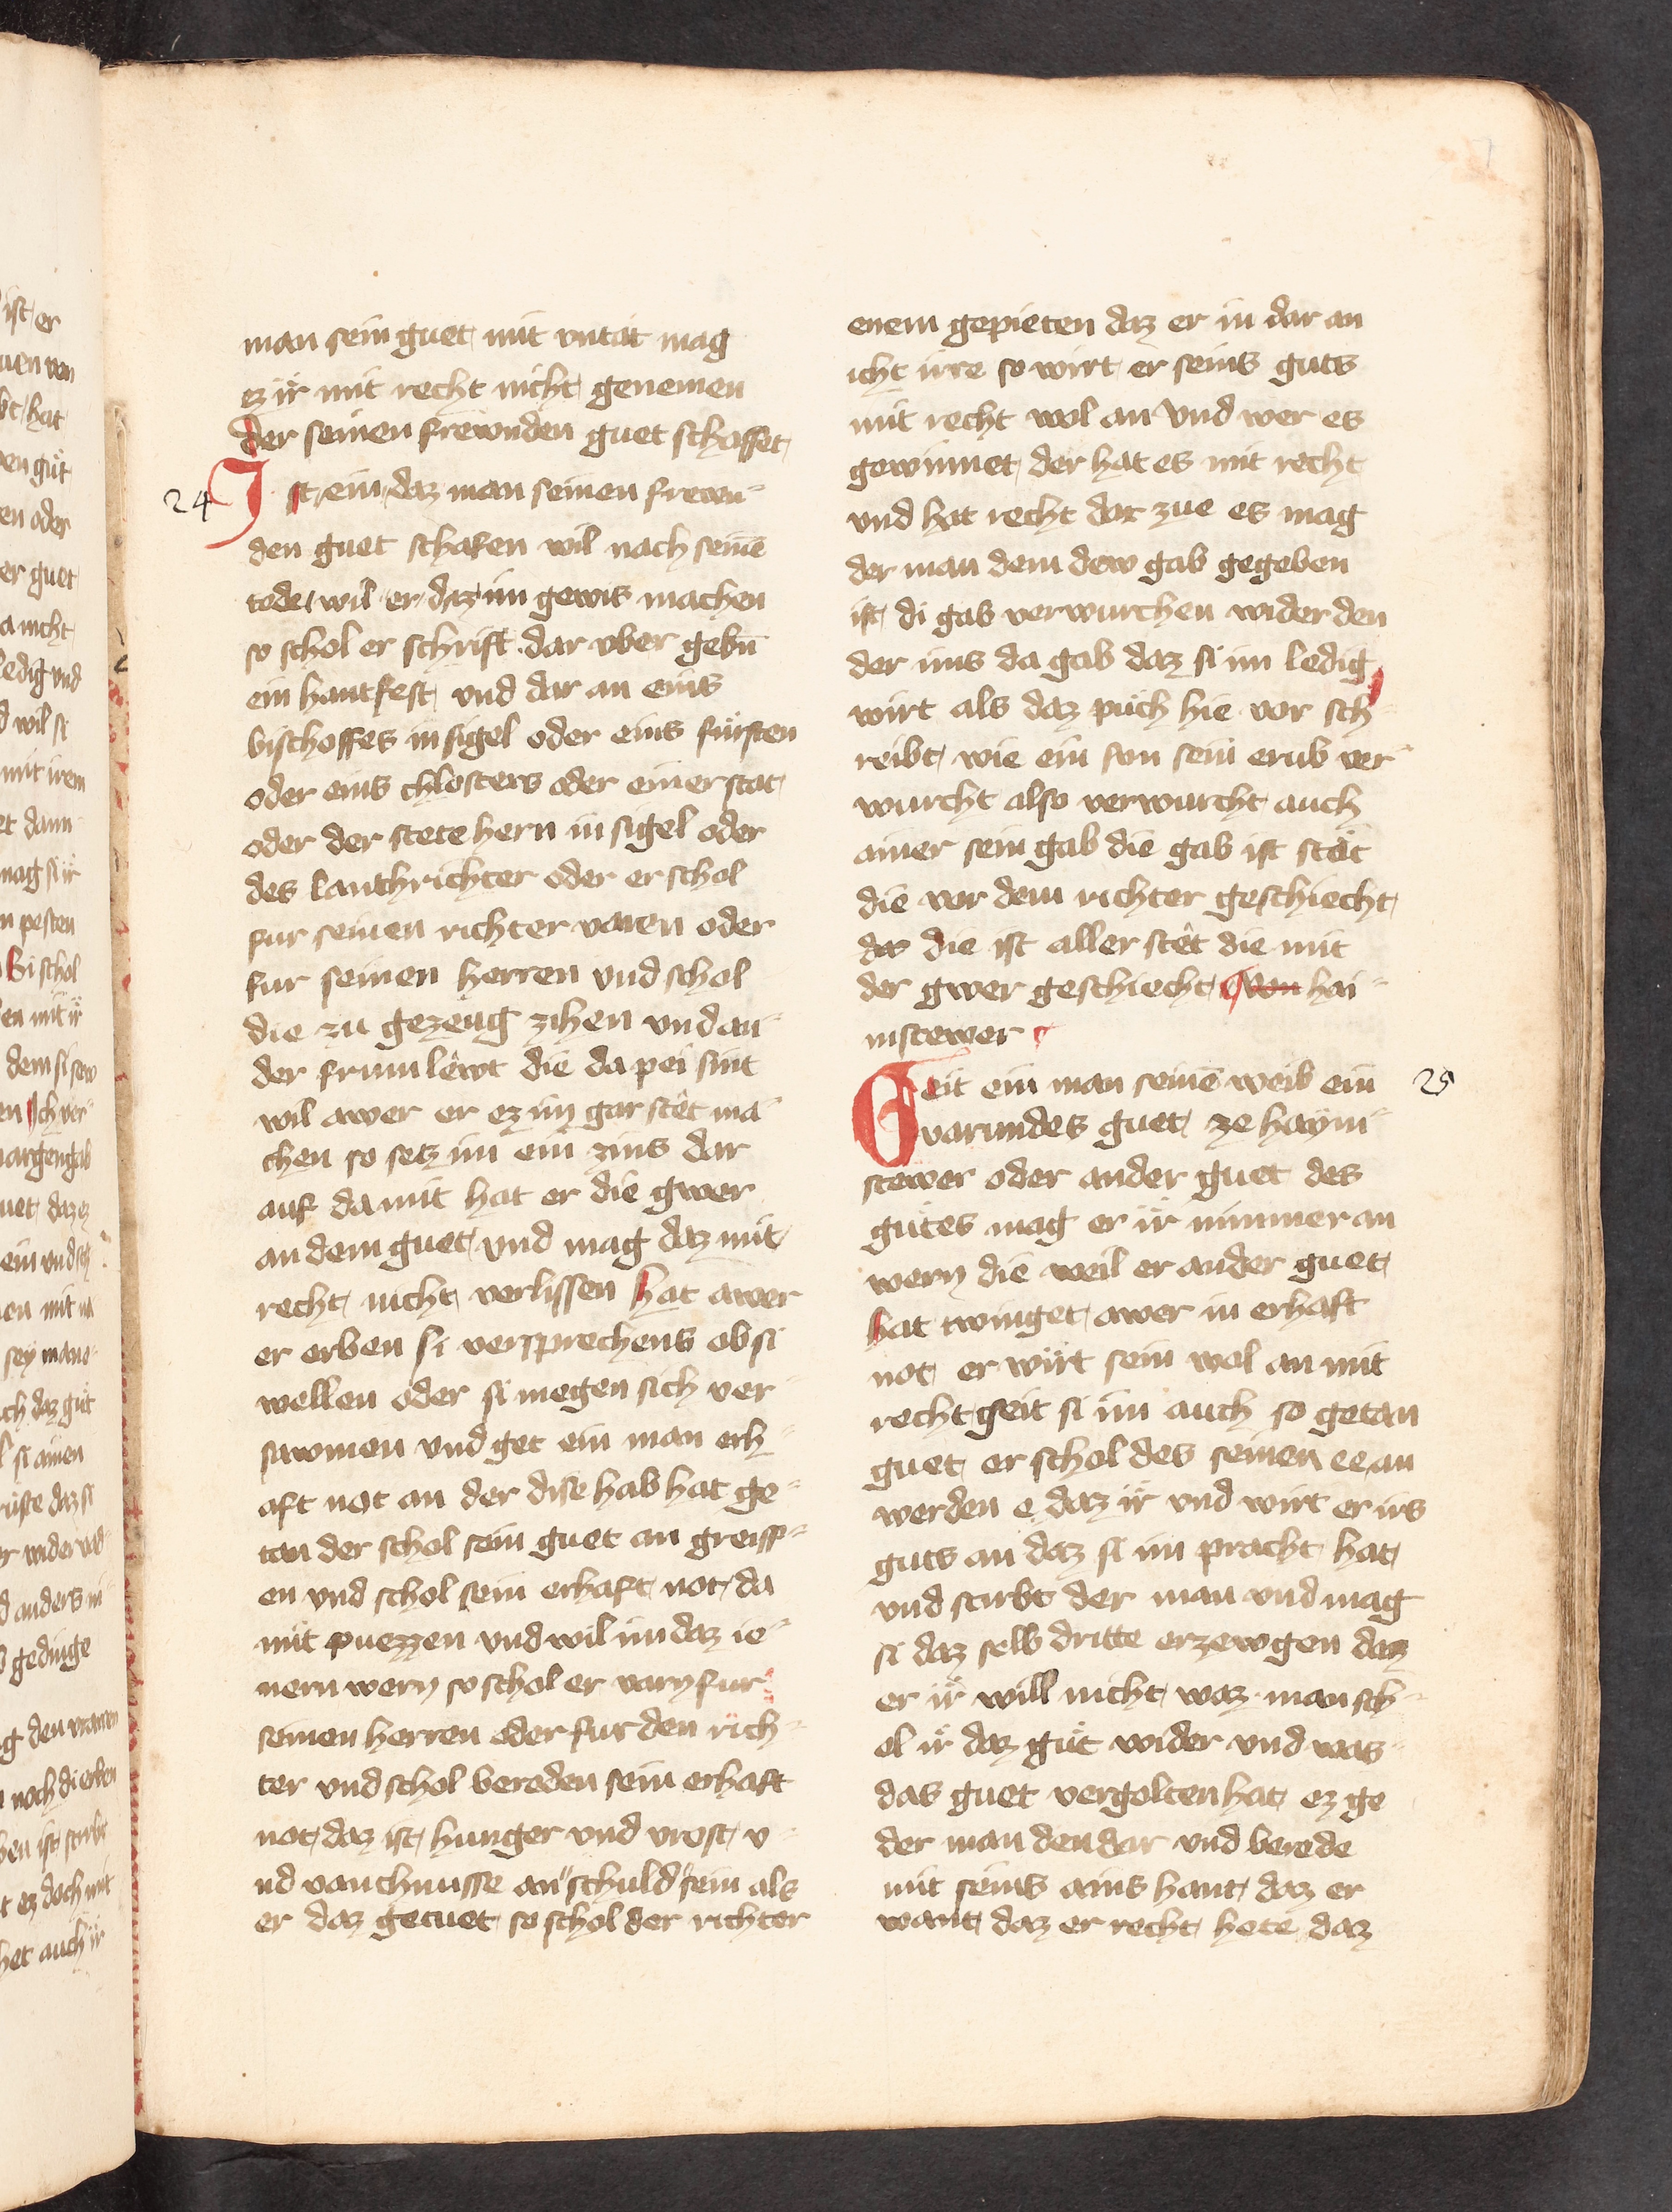 man sein guet mit vntat mag
ez ir mit recht nicht genemen
der seinen frewnden guet schaffet
24 Ist ein daz man seinen frewn-
den guet schafen wil nach seinē
tode wil er daz im gewis machen
so schol er schrift dar vber gebn̄
ein hantfest vnd dar an eins
bischoffes insigel oder eins fürsten
oder eins chlosters oder einer stat
oder der stete hern insigel oder
des lanthrichter oder er schol
fur seinen richter varen oder
fur seinen herren vnd schol
die zu gezeug zihen vnd an-
der frum lewt die da pei sint
wil awer er ez im gar stet ma-
chen so setz im ein zins dar
auf damit hat er die gwer
an dem guet vnd mag daz mit
recht nicht verlissen hat awer
er erben si versprechens ob si
wellen oder si megen sich ver-
sawmen vnd get ein man erh-
aft not an der dise hab hat ge-
tan der schol sein guet an greiff-
en vnd schol sein erhaft not da
mit puezzen vnd wil im daz ie-
nern wern so schol er varn fur
seinen herren oder fur den rich-
ter vnd schol bereden sein erhaft
not daz ist hunger vnd vrost v-
nd vanchnusse an schuld sein als
er daz getuet so schol der richter
enem gepieten daz er in dar an
icht irre so wirt er seins guts
mit recht wol an vnd wer es
gewinnet der hat es mit recht
vnd hat recht dar zue es mag
der man dem dew gab gegeben
ist di gab verwurchen wider den
der ims da gab daz si im ledig
wirt als daz puch hie vor sch-
reibt wie ein sun sein erib ver-
wurcht also verwurcht auch
ainer sein gab die gab ist stät
die vor dem richter geschiecht
da die ist aller stet die mit
der gwer geschiecht von hai-
mstewer
Geit ein man seinē weib ein 25
varundes guet ze haym-
stewer oder ander guet des
gutes mag er ir nimmer an
wern die weil er ander guet
hat twinget awer in erhaft
not er wirt sein wol an mit
recht geit si im auch so getan
guet er schol des seinen ee an
werden e daz ir vnd wirt er irs
guts an daz si im pracht hat
vnd stirbt der man vnd mag
si daz selb dritte erzewgen daz
er ir will nicht waz man sch-
ol ir daz gut wider vnd was
das guet vergolten hat ez ge
der man den dar vnd berede
mit seins ains hant daz er
want daz er recht hete daz